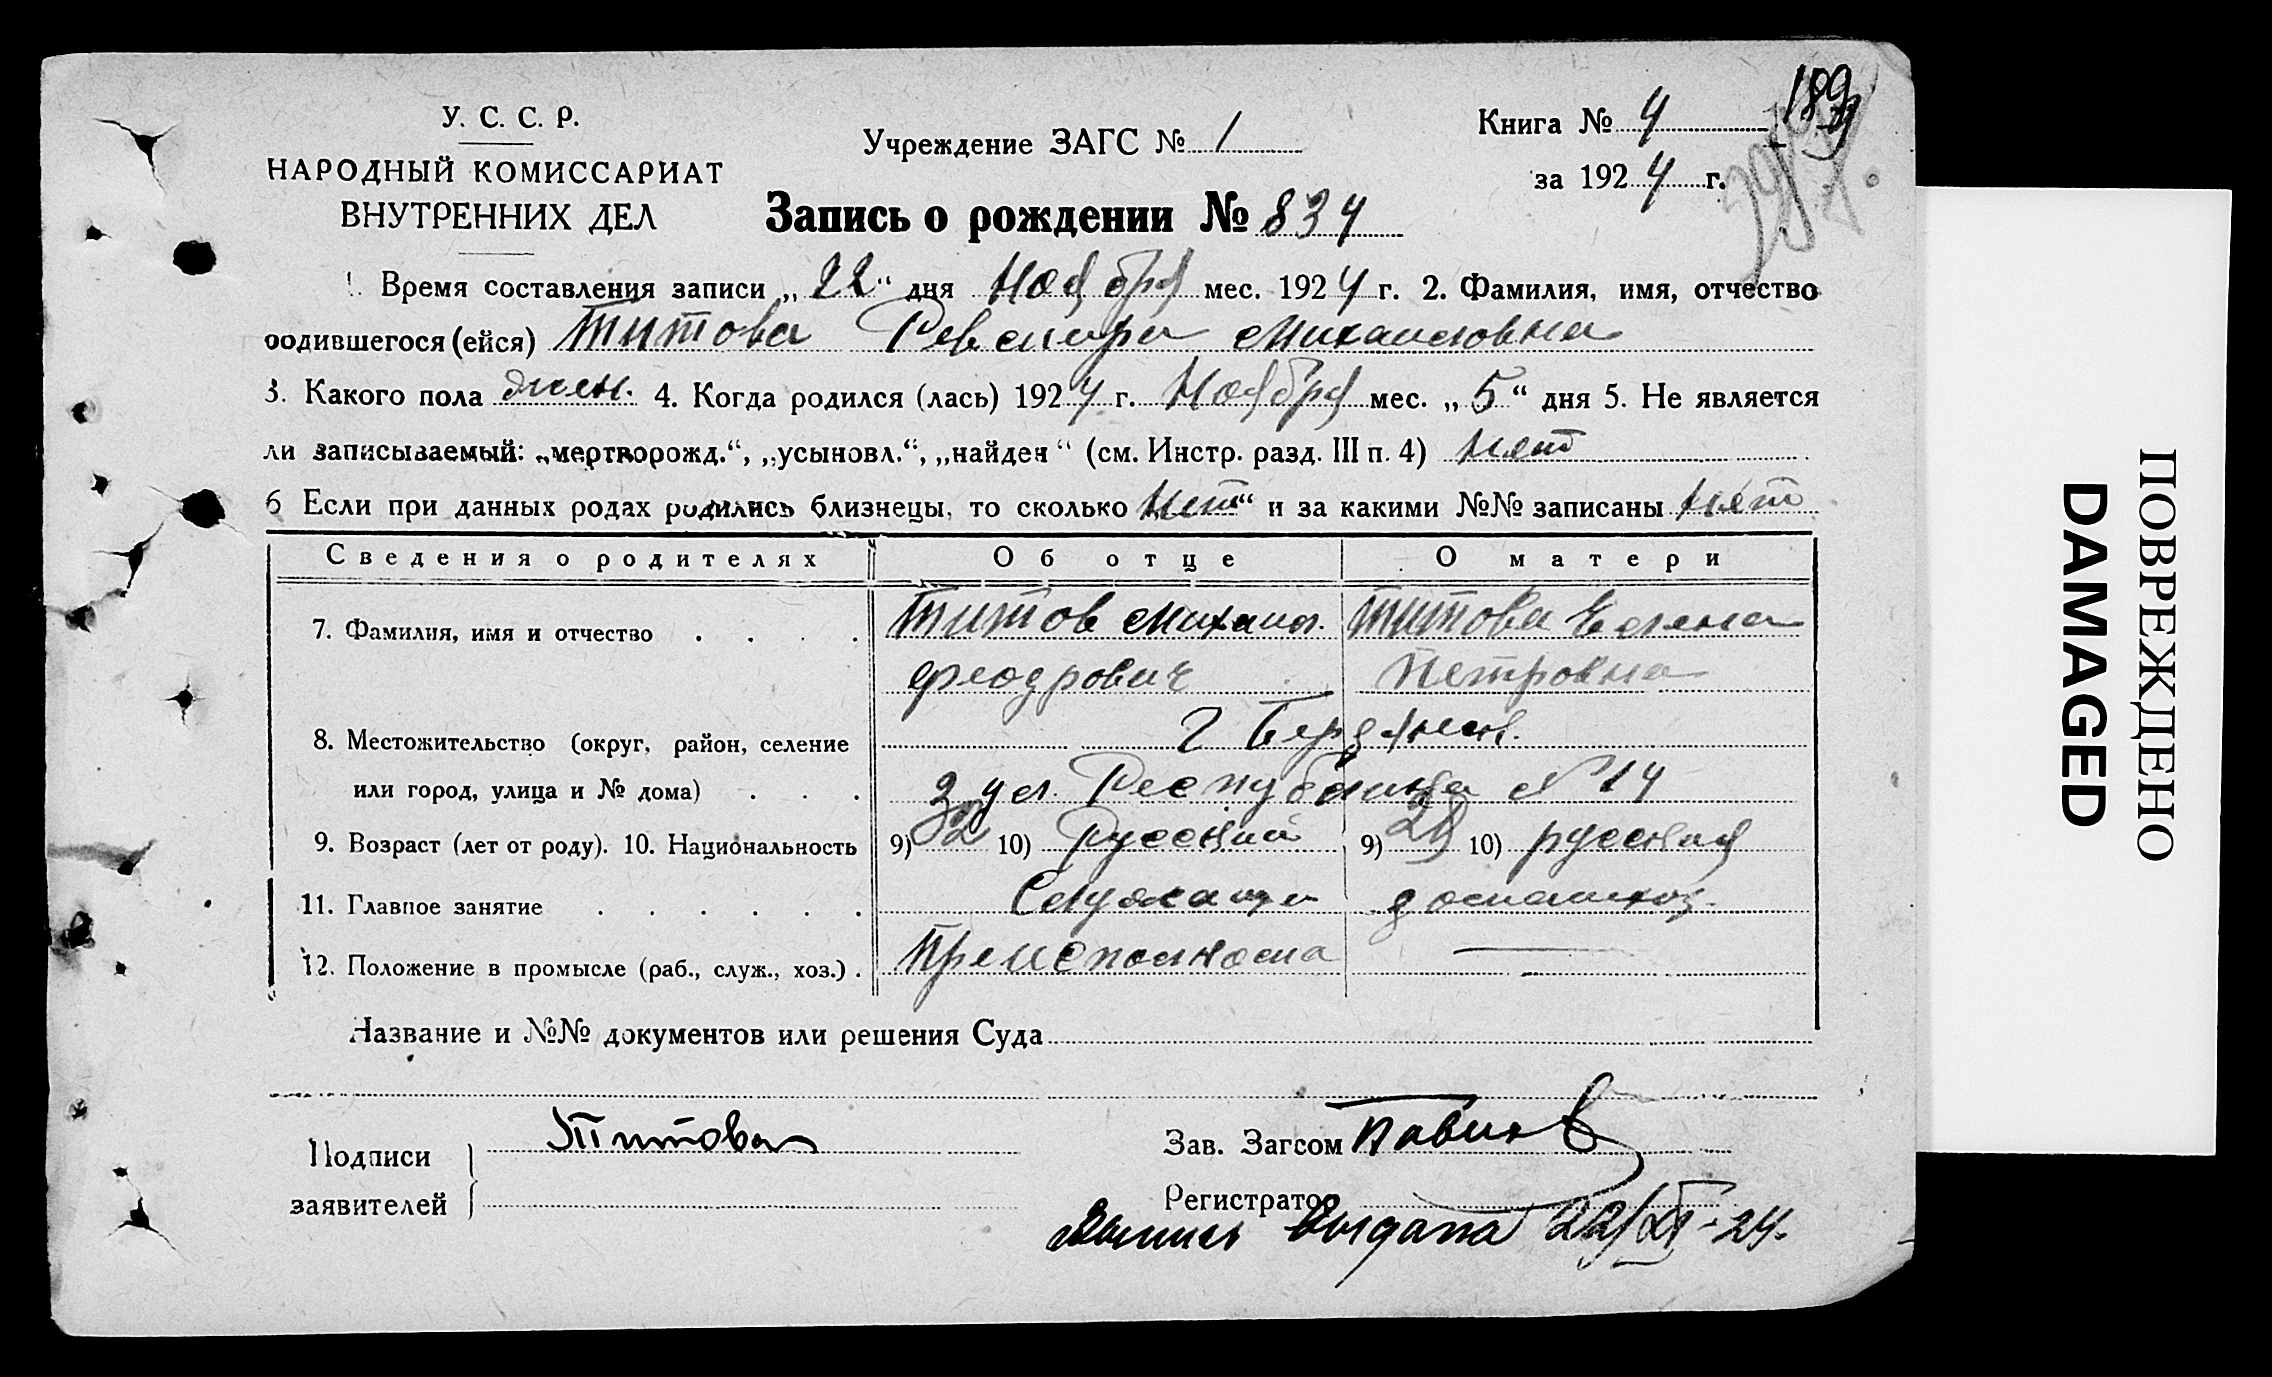 У. С. С. Р.
НАРОДНЫЙ КОМИССАРИАТ
ВНУТРЕННИХ ДЕЛ
Учреждение ЗАГС № 1
Книга № 4
за 1924 г.
Запись о рождении № 834
1. Время составления записи „22“ дня Ноября мес. 1924 г. 2. Фамилия, имя, отчество
родившегося (ейся) Титова Ревмира Михаиловна
3. Какого пола жен. 4. Когда родился (лась) 1924 г. Ноября мес. „5“ дня 5. Не является
ли записываемый: „мертворожд.“, „усыновл.“, „найден“ (см. Инстр. разд. III п. 4) нет
6 Если при данных родах родились близнецы, то сколько нет“ и за какими №№ записаны нет
Сведения о родителях Об отце О матери
7. Фамилия, имя и отчество . . . . Титов Михаил. Титова Елена
Феодрович Петровна
8. Местожительство (округ, район, селение г Бердянск.
или город, улица и № дома) . . . ул. Республики № 14
9. Возраст (лет от роду). 10. Национальность 9) 32 10) Русский 9) 10) русская
11. Главное занятие . . . . . . Служащи домашхоз.
12. Положение в промысле (раб., служ., хоз.) .
Название и №№ документов или решения Суда
Подписи
заявителей
Титова
Зав. Загсом
Регистратор
выдана 22/XI-24.
ПОВРЕЖДЕНО
DAMAGED